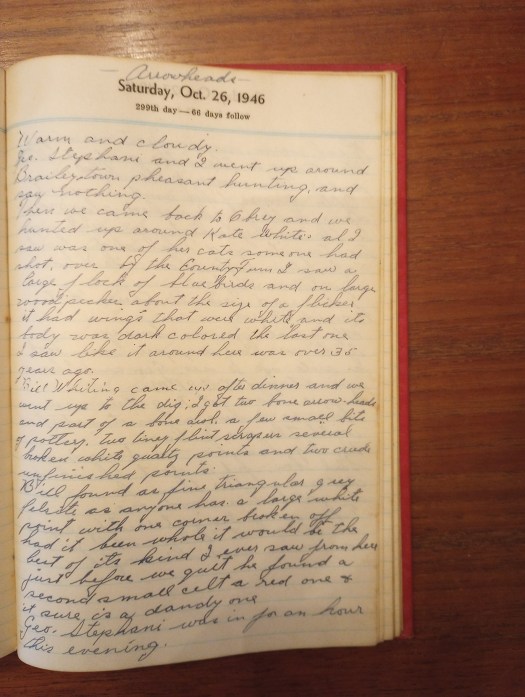 Arrowheads
Saturday, Oct. 26, 1946
299th day—66 days follow
Warm and cloudy.
Geo. Stephani and I went up around
Braileytown pheasant hunting, and
saw nothing.
Then we came back to Obey and we
hunted up around Kate Whites al I
saw was one of her cats someone had
shot, over by the County Farm I saw a
large flock of bluebirds and on large
woodpecker about the size of a flicker
it had wings that were white and its
body was dark colored the last one
I saw like it around here was over 35
years ago.
Bill Whiting came up after dinner and we
went up to the dig; I got two bone arrow-heads
and part of a bone awl. a few small bits
of pottery, two tiney flint scrapers several
broken white quartz points and two crude
unfinished points.
Bill found as fine triangular grey
as anyone has. a large white
point with one corner broken off
had it been whole it would be the
best of its kind I ever saw from here
just before we quit he found a
second small celt a red one &
it sure is a dandy one
Geo. Stephani was in for an hour
this evening.